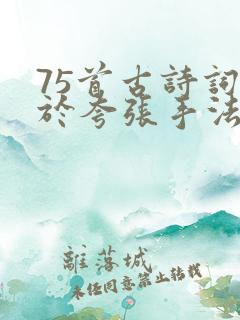 75首古詩詞
於夸張手法
離落城
未经同意禁止转载